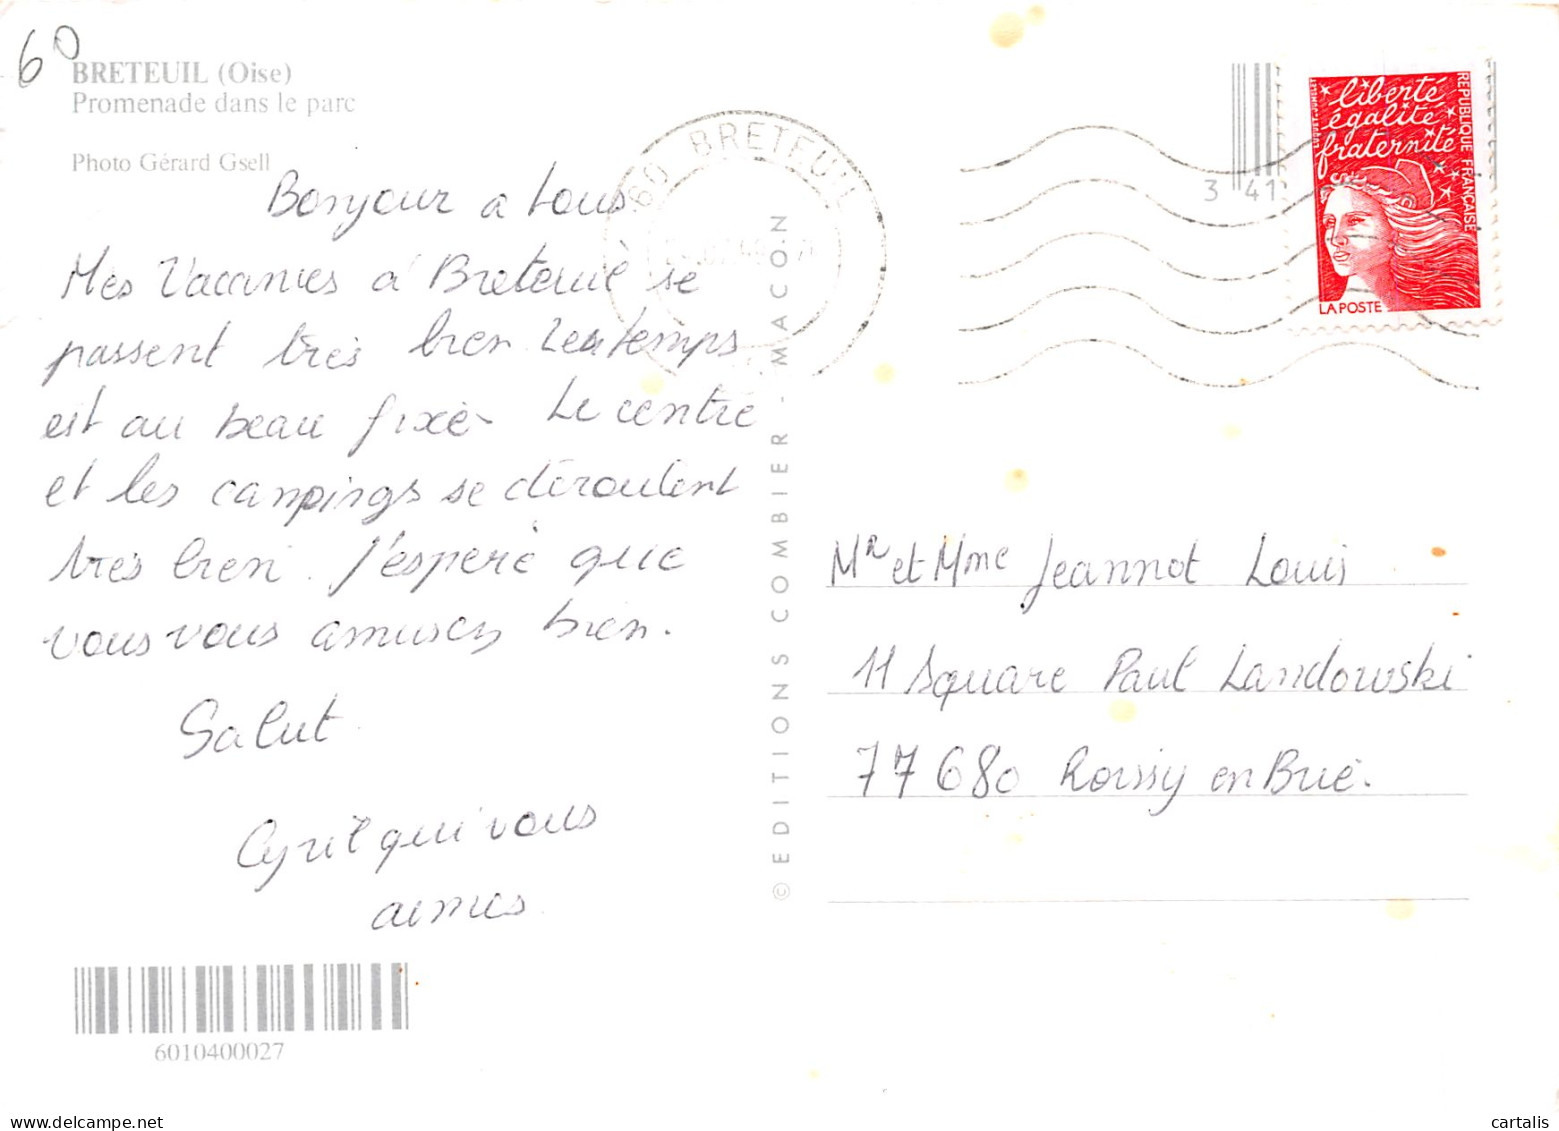 60
BRETEUIL (Oise)
Promenade dans le parc
Photo Gérard Gsell
Bonjour a tous
Mes Vacances à Breteuil se
passent très bien Le temps
est au beau fixe. Le centre
et les campings se déroulent
très bien. J'espère que
vous vous amusez bien.
Salut
Cyril qui vous
aimes
6010400027
© EDITIONS COMBIER - MACON
60 BRETEUIL
3 41
liberté
égalité
fraternité
REPUBLIQUE FRANÇAISE
LA POSTE
Mr et Mme Jeannot Louis
11 Square Paul Landowski
77680 Roissy en Brie.
www.delcampe.net
cartalis